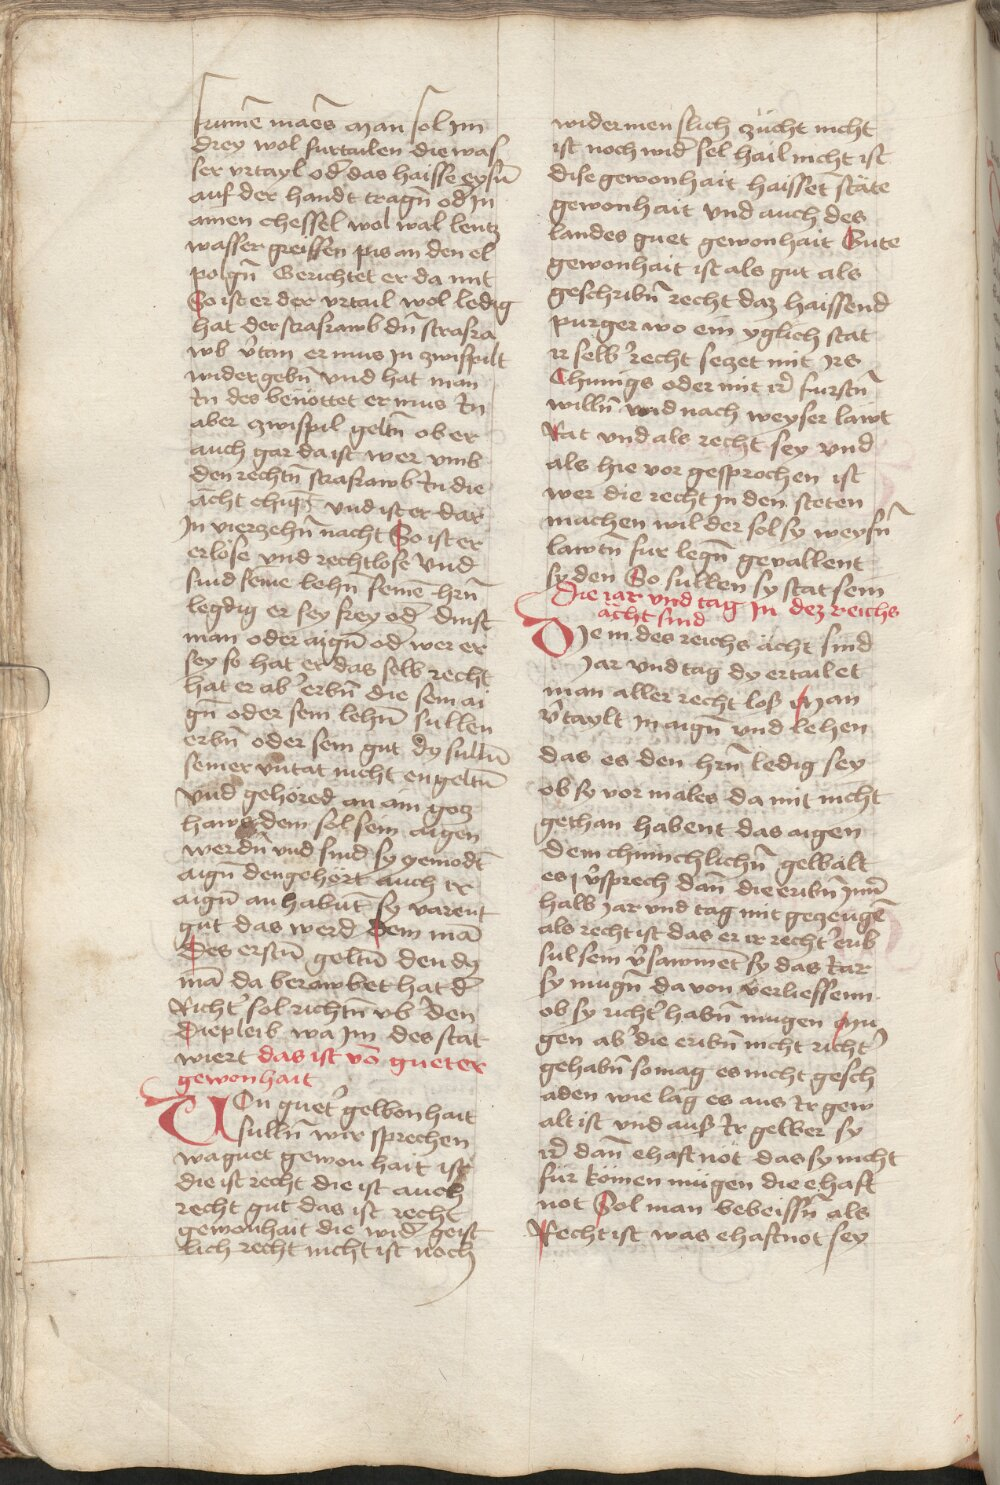 frume maes man sol im
drey wol furtailen die was
ser vrtayl od das haisse eysn
auf der handt tragn od in
ainen chessel wol wal lentz
wasser greiffen pis an den el
polgn Gerichtet er da mit
So ist er der vrtail wol ledig
hat der strasrawb dn strasra
wb vtan er mus in zwispilt
wider gebn vnd hat man
In des benöttet er mus In
aber zwispil geltn ob er
auch gar da ist wer vmb
den rechtn strasrawb In die
ächt chüpt vnd ist er dar
In vierzehn nacht So ist er
erlose vnd rechtlose Vnd
sind seine lehn seine hrn
legdig er sey frey od dinst
man oder aign od wer er
sey so hat er das selb recht
hat er ab erbn die sein ai
gn oder sein lehn sullen
erbn oder sein gut dy sulln
seiner vntat nicht engeltn
vnd gehored an ain gotz
haws dem sol sein aigen
werdn vnd sind sy gemodt
aign den gehört auch ir
aign an habnt sy varent
gut das werd Dem ma
des erstn geltn den dy
ma da berawbet hat d
Richt sol richtn vb den
Diepleib wa im des stat
wiert das ist vo gueter
gewonhait
Von guet gewonhait
sulln wir sprechen
wa guet gewonhait ist
die ist recht die ist auch
recht gut das ist recht
gewonhait die wid geist
lich recht nicht ist noch
wider menslich zücht nicht
ist noch wid sel hail nicht ist
dise gewonhait haisset stäte
gewonhait vnd auch des
landes guet gewonhait Gute
gewonhait ist als gut als
geschribn recht daz haissend
purger wo ein yglich stat
ir selb recht sezet mit irs
Chunigs oder mit ir furstn
willn vnd nach weyser lawt
Rat vnd als recht sey vnd
als hie vor gesprochen ist
wer die recht in den steten
machen wil der sol sy weysn
lawtn fur legn gevallent
sy den So sullen sy stat sein
Die iar vnd tag In dez reichs
ächt sind
Die in des reichs ächt sind
Jar vnd tag dy ertailet
man aller recht loß Man
vtaylt in aign vnd lehen
das es den hrn ledig sey
ob sy vor males da mit nicht
gethan habent das aigen
dem chunichlichn gewalt
es vsprech dan die eribn inn
halb iar vnd tag mit gezeuge
als recht ist das er ir recht erib
sul sein vsawmet sy das Iar
sy mugn da von verliessenn
ob sy richt habn mugen Mu
gen ab die eribn nicht richt
gehabn so mag es nicht gesch
aden wie lag es aus Ir gew
alt ist vnd auß Ir gelber sy
ir dan ehaft not das sy nicht
für kömen mügen die ehaft
not Sol man beweissn als
Recht ist was ehaft not sey